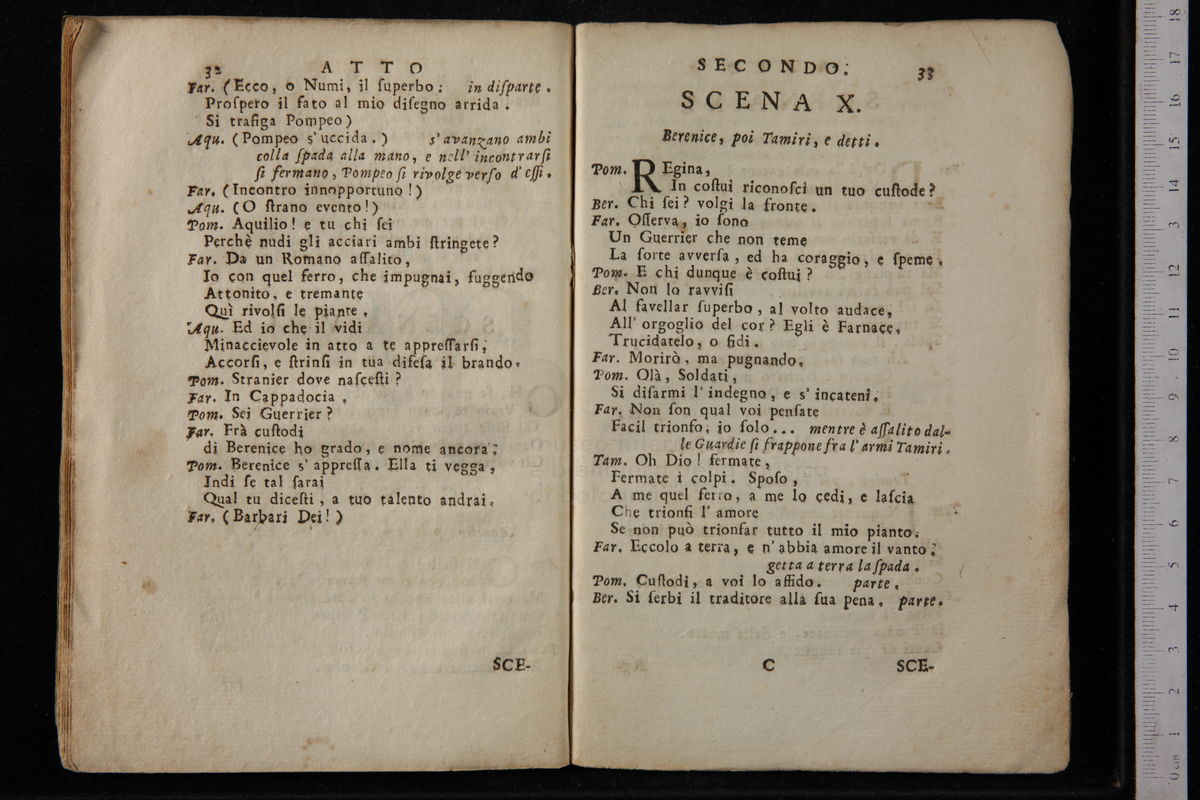 32 ATTO
Far. (Ecco, o Numi, il ſuperbo: in diſparte.
Proſpero il fato al mio diſegno arrida.
Si trafiga Pompeo)
Aqu. (Pompeo s' uccida.) s' avanzano ambi
colla ſpada alla mano, e nell' incontrarſi
ſi fermano, Pompeo ſi rivolge verſo d' eſſi.
Far. (Incontro innopportuno!)
Aqu. (O ſtrano evento!)
Pom. Aquilio! e tu chi ſei
Perchè nudi gli acciari ambi ſtringete?
Far. Da un Romano aſſalito,
Io con quel ferro, che impugnai, fuggendo
Attonito, e tremante
Quì rivolſi le piante.
Aqu. Ed io che il vidi
Minaccievole in atto a te appreſſarſi,
Accorſi, e ſtrinſi in tua difeſa il brando.
Pom. Stranier dove naſceſti?
Far. In Cappadocia.
Pom. Sei Guerrier?
Far. Frà cuſtodi
di Berenice ho grado, e nome ancora.
Pom. Berenice s' appreſſa. Ella ti vegga,
Indi ſe tal ſarai
Qual tu diceſti, a tuo talento andrai.
Far. (Barbari Dei!)
SCE-
SECONDO. 33
SCENA X.
Berenice, poi Tamiri, e detti.
Pom. REgina,
In coſtui riconoſci un tuo cuſtode?
Ber. Chi ſei? volgi la fronte.
Far. Oſſerva, io ſono
Un Guerrier che non teme
La ſorte avverſa, ed ha coraggio, e ſpeme.
Pom. E chi dunque è coſtui?
Ber. Non lo ravviſi
Al favellar ſuperbo, al volto audace,
All' orgoglio del cor? Egli è Farnace,
Trucidatelo, o fidi.
Far. Morirò, ma pugnando.
Pom. Olà, Soldati,
Si diſarmi l' indegno, e s' incateni.
Far. Non ſon qual voi penſate
Facil trionfo; io ſolo... mentre è aſſalito dal-
le Guardie ſi frappone fra l' armi Tamiri.
Tam. Oh Dio! fermate,
Fermate i colpi. Spoſo,
A me quel ferro, a me lo cedi, e laſcia
Che trionfi l' amore
Se non può trionfar tutto il mio pianto.
Far. Eccolo a terra, e n' abbia amore il vanto.
getta a terra la ſpada.
Pom. Cuſtodi, a voi lo affido. parte.
Ber. Si ſerbi il traditore alla ſua pena. parte.
C SCE-